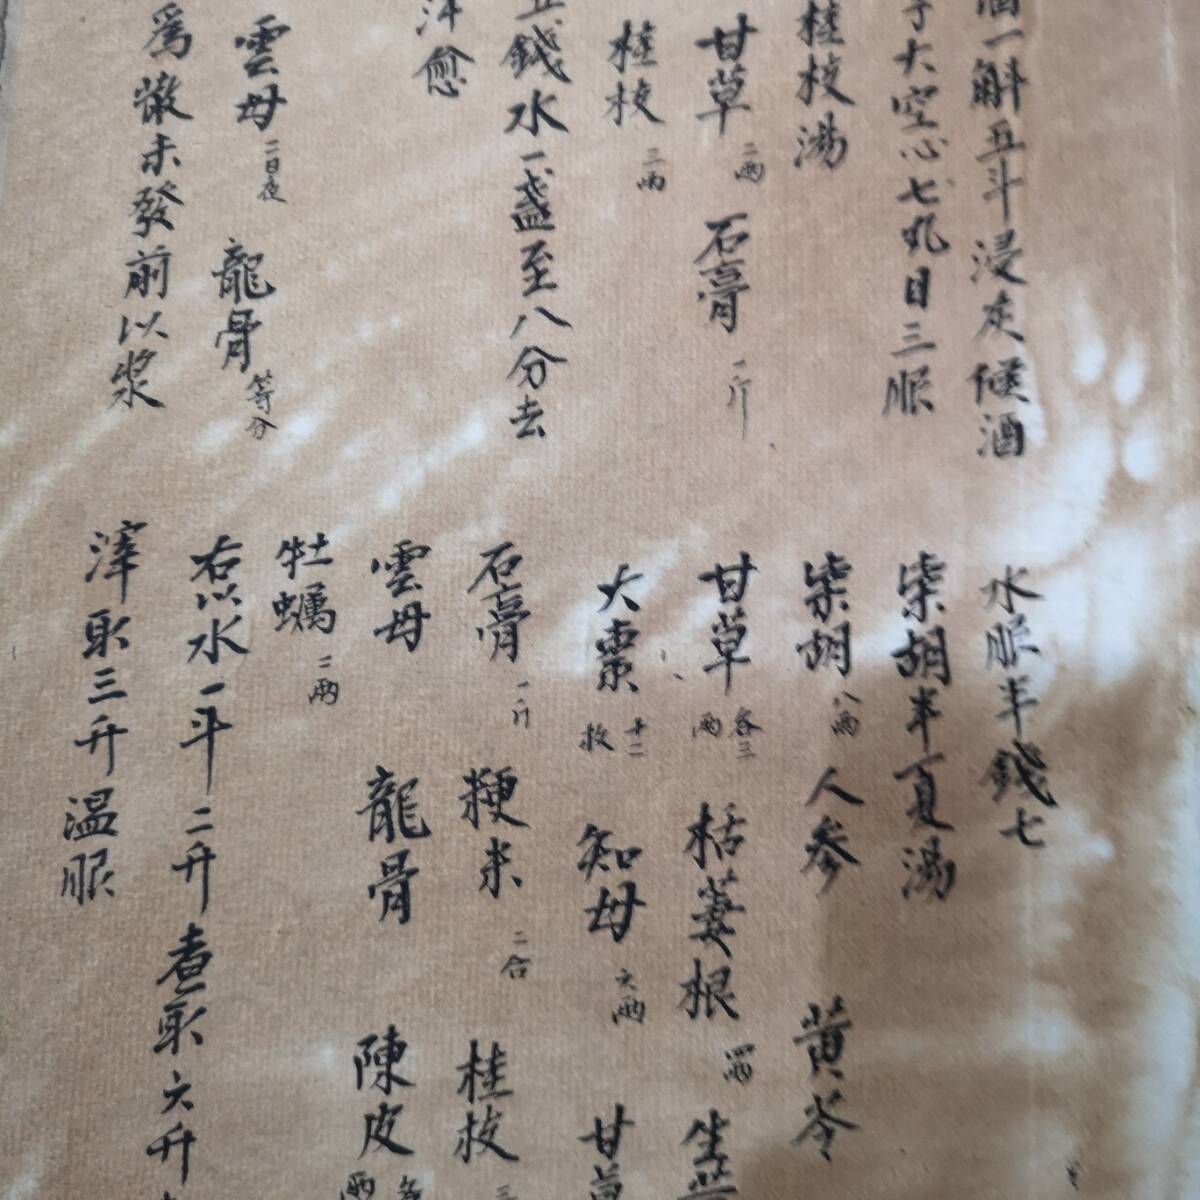 酒一斛五斗浸灰候酒
子大空心七丸日三服
桂枝湯
甘草 二兩 石膏 一斤
桂枝 三兩
五錢水一盞至八分去
滓愈
雲母 二日夜 龍骨 等分
爲散未發前以漿
水服半錢七
柴胡半夏湯
柴胡 八兩 人参 黄芩
甘草 各三兩 栝蔞根 四兩 生
大棗 十二枚 知母 六兩 甘草
石膏 一斤 粳米 二合 桂枝 三
雲母 龍骨 陳皮 各 兩
牡蠣 二兩
右以水一斗二升煮取六升
滓取三升温服